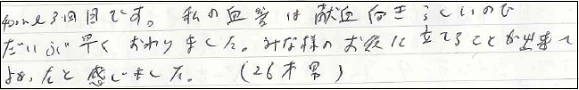 3回目です。私の血管は献血向きらしいので
だいぶ早くおわりました。みな様のお役に立てることが出来て
よかったと感じました。(26才男)